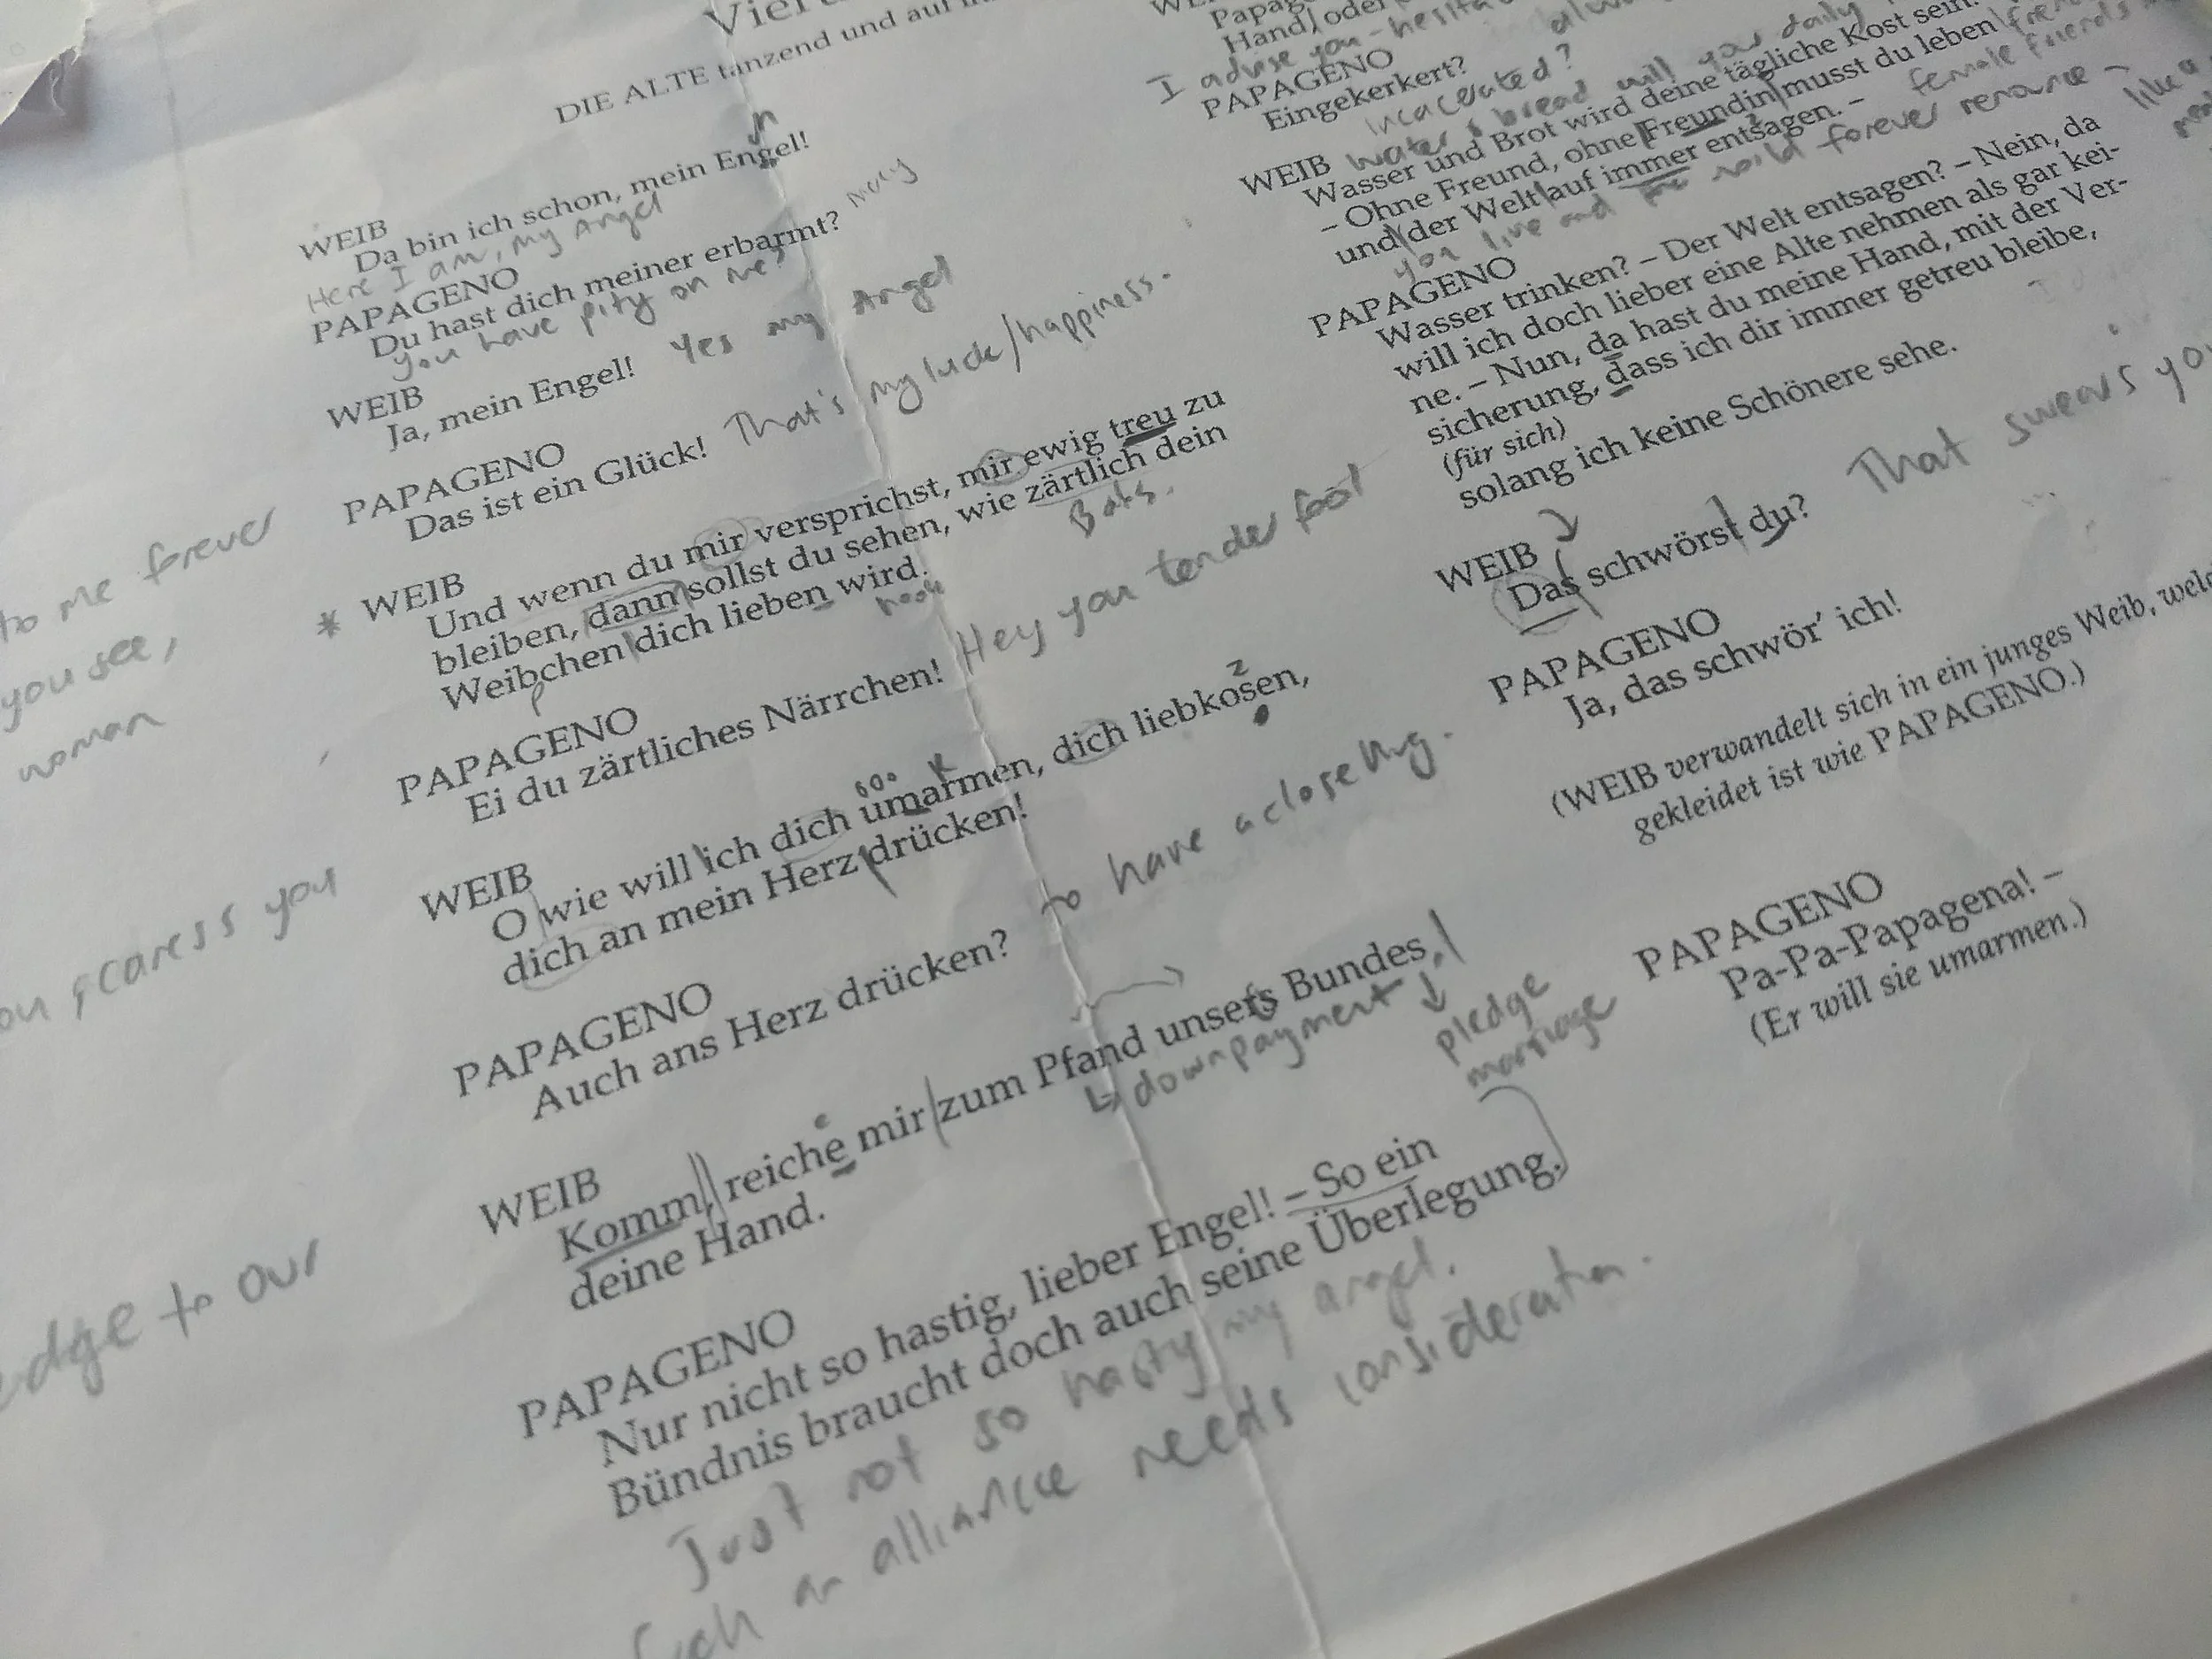 DIE ALTE tanzend und auf
WEIB
Da bin ich schon, mein Engel!
Here I am, my Angel
PAPAGENO
Du hast dich meiner erbarmt?
you have pity on me?
WEIB
Ja, mein Engel! Yes my Angel
PAPAGENO
Das ist ein Glück! That's my luck/happiness.
to me forever
you see,
woman
* WEIB
Und wenn du mir versprichst, mir ewig treu zu
bleiben, dann sollst du sehen, wie zärtlich dein
Weibchen dich lieben wird.
PAPAGENO
Ei du zärtliches Närrchen! Hey you tender fool
caress you
WEIB
O wie will ich dich umarmen, dich liebkosen,
dich an mein Herz drücken!
PAPAGENO
Auch ans Herz drücken? to have a close hug.
to our
WEIB
Komm, reiche mir zum Pfand unsers Bundes
downpayment
pledge
marriage
deine Hand.
PAPAGENO
Nur nicht so hastig, lieber Engel! – So ein
Bündnis braucht doch auch seine Überlegung.
Just not so hasty my angel.
Such an alliance needs consideration.
Hand, oder
I advise you - 
PAPAGENO
Eingekerkert?
Incacerated?
WEIB water & bread will your daily
Wasser und Brot wird deine tägliche Kost sein.
– Ohne Freund, ohne Freundin musst du leben
und der Welt auf immer entsagen. – female friends
you live and the world forever renounce –
PAPAGENO
Wasser trinken? – Der Welt entsagen? – Nein, da
will ich doch lieber eine Alte nehmen als gar kei-
ne. – Nun, da hast du meine Hand, mit der Ver-
sicherung, dass ich dir immer getreu bleibe,
(für sich)
solang ich keine Schönere sehe.
WEIB
Das schwörst du? That swears
PAPAGENO
Ja, das schwör' ich!
(WEIB verwandelt sich in ein junges Weib,
gekleidet ist wie PAPAGENO.)
PAPAGENO
Pa-Pa-Papagena! –
(Er will sie umarmen.)